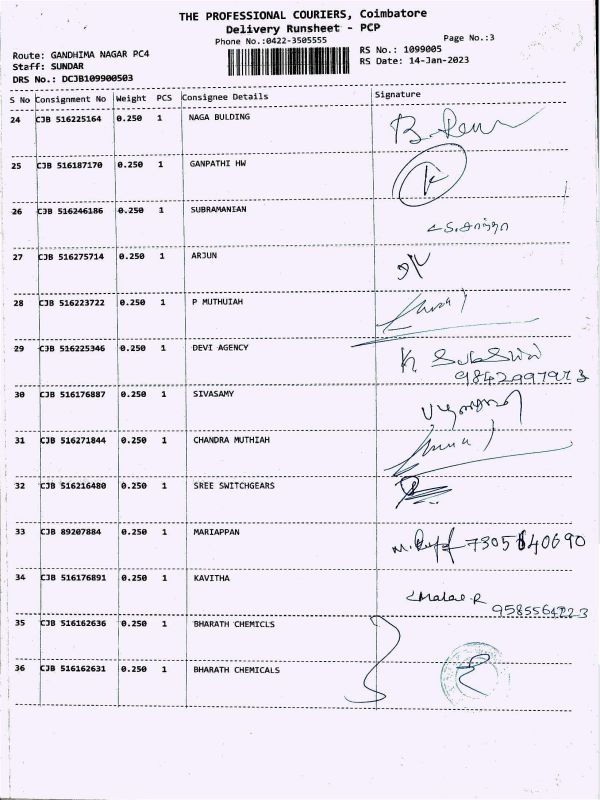 THE PROFESSIONAL COURIERS, Coimbatore
Delivery Runsheet - PCP
Phone No.:0422-3505555
Page No.:3
Route: GANDHIMA NAGAR PC4
Staff: SUNDAR
DRS No.: DCJB109900503
RS No.: 1099005
RS Date: 14-Jan-2023
S No Consignment No Weight PCS Consignee Details Signature
24 CJB 516225164 0.250 1 NAGA BULDING
25 CJB 516187170 0.250 1 GANPATHI HW
26 CJB 516246186 0.250 1 SUBRAMANIAN
27 CJB 516275714 0.250 1 ARJUN
28 CJB 516223722 0.250 1 P MUTHUIAH
29 CJB 516225346 0.250 1 DEVI AGENCY
30 CJB 516176887 0.250 1 SIVASAMY
31 CJB 516271844 0.250 1 CHANDRA MUTHIAH
32 CJB 516216480 0.250 1 SREE SWITCHGEARS
33 CJB 89207884 0.250 1 MARIAPPAN
34 CJB 516176891 0.250 1 KAVITHA
35 CJB 516162636 0.250 1 BHARATH CHEMICLS
36 CJB 516162631 0.250 1 BHARATH CHEMICALS